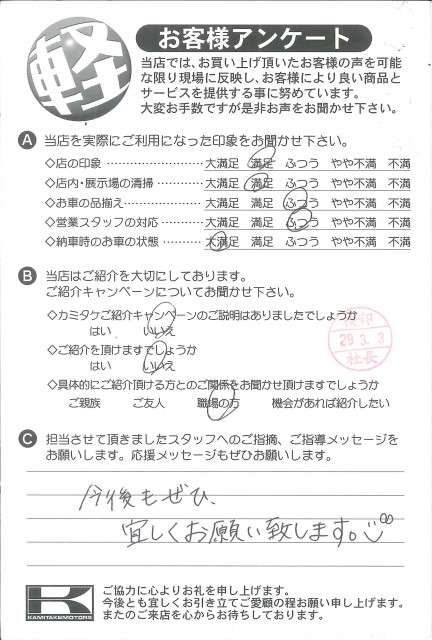 軽
お客様アンケート
当店では、お買い上げ頂いたお客様の声を可能
な限り現場に反映し、お客様により良い商品と
サービスを提供する事に努めています。
大変お手数ですが是非お声をお聞かせ下さい。
A 当店を実際にご利用になった印象をお聞かせ下さい。
◇店の印象 ‥‥‥‥‥‥‥ 大満足 満足 ふつう やや不満 不満
◇店内・展示場の清掃‥‥‥‥ 大満足 満足 ふつう やや不満 不満
◇お車の品揃え‥‥‥‥‥‥ 大満足 満足 ふつう やや不満 不満
◇営業スタッフの対応‥‥‥‥ 大満足 満足 ふつう やや不満 不満
◇納車時のお車の状態‥‥‥‥ 大満足 満足 ふつう やや不満 不満
B 当店はご紹介を大切にしております。
ご紹介キャンペーンについてお聞かせ下さい。
◇カミタケご紹介キャンペーンのご説明はありましたでしょうか
はい いいえ
◇ご紹介を頂けますでしょうか
はい いいえ
検印
29.3.3
社長
◇具体的にご紹介頂ける方とのご関係をお聞かせ頂けますでしょうか
ご親族 ご友人 職場の方 機会があれば紹介したい
C 担当させて頂きましたスタッフへのご指摘、ご指導メッセージを
お願いします。応援メッセージもぜひお願いします。
今後もぜひ、
宜しくお願い致します。
K
KAMITAKEMOTORS
ご協力に心よりお礼を申し上げます。
今後とも宜しくお引き立てご愛顧の程お願い申し上げます。
またのご来店を心からお待ちしております。